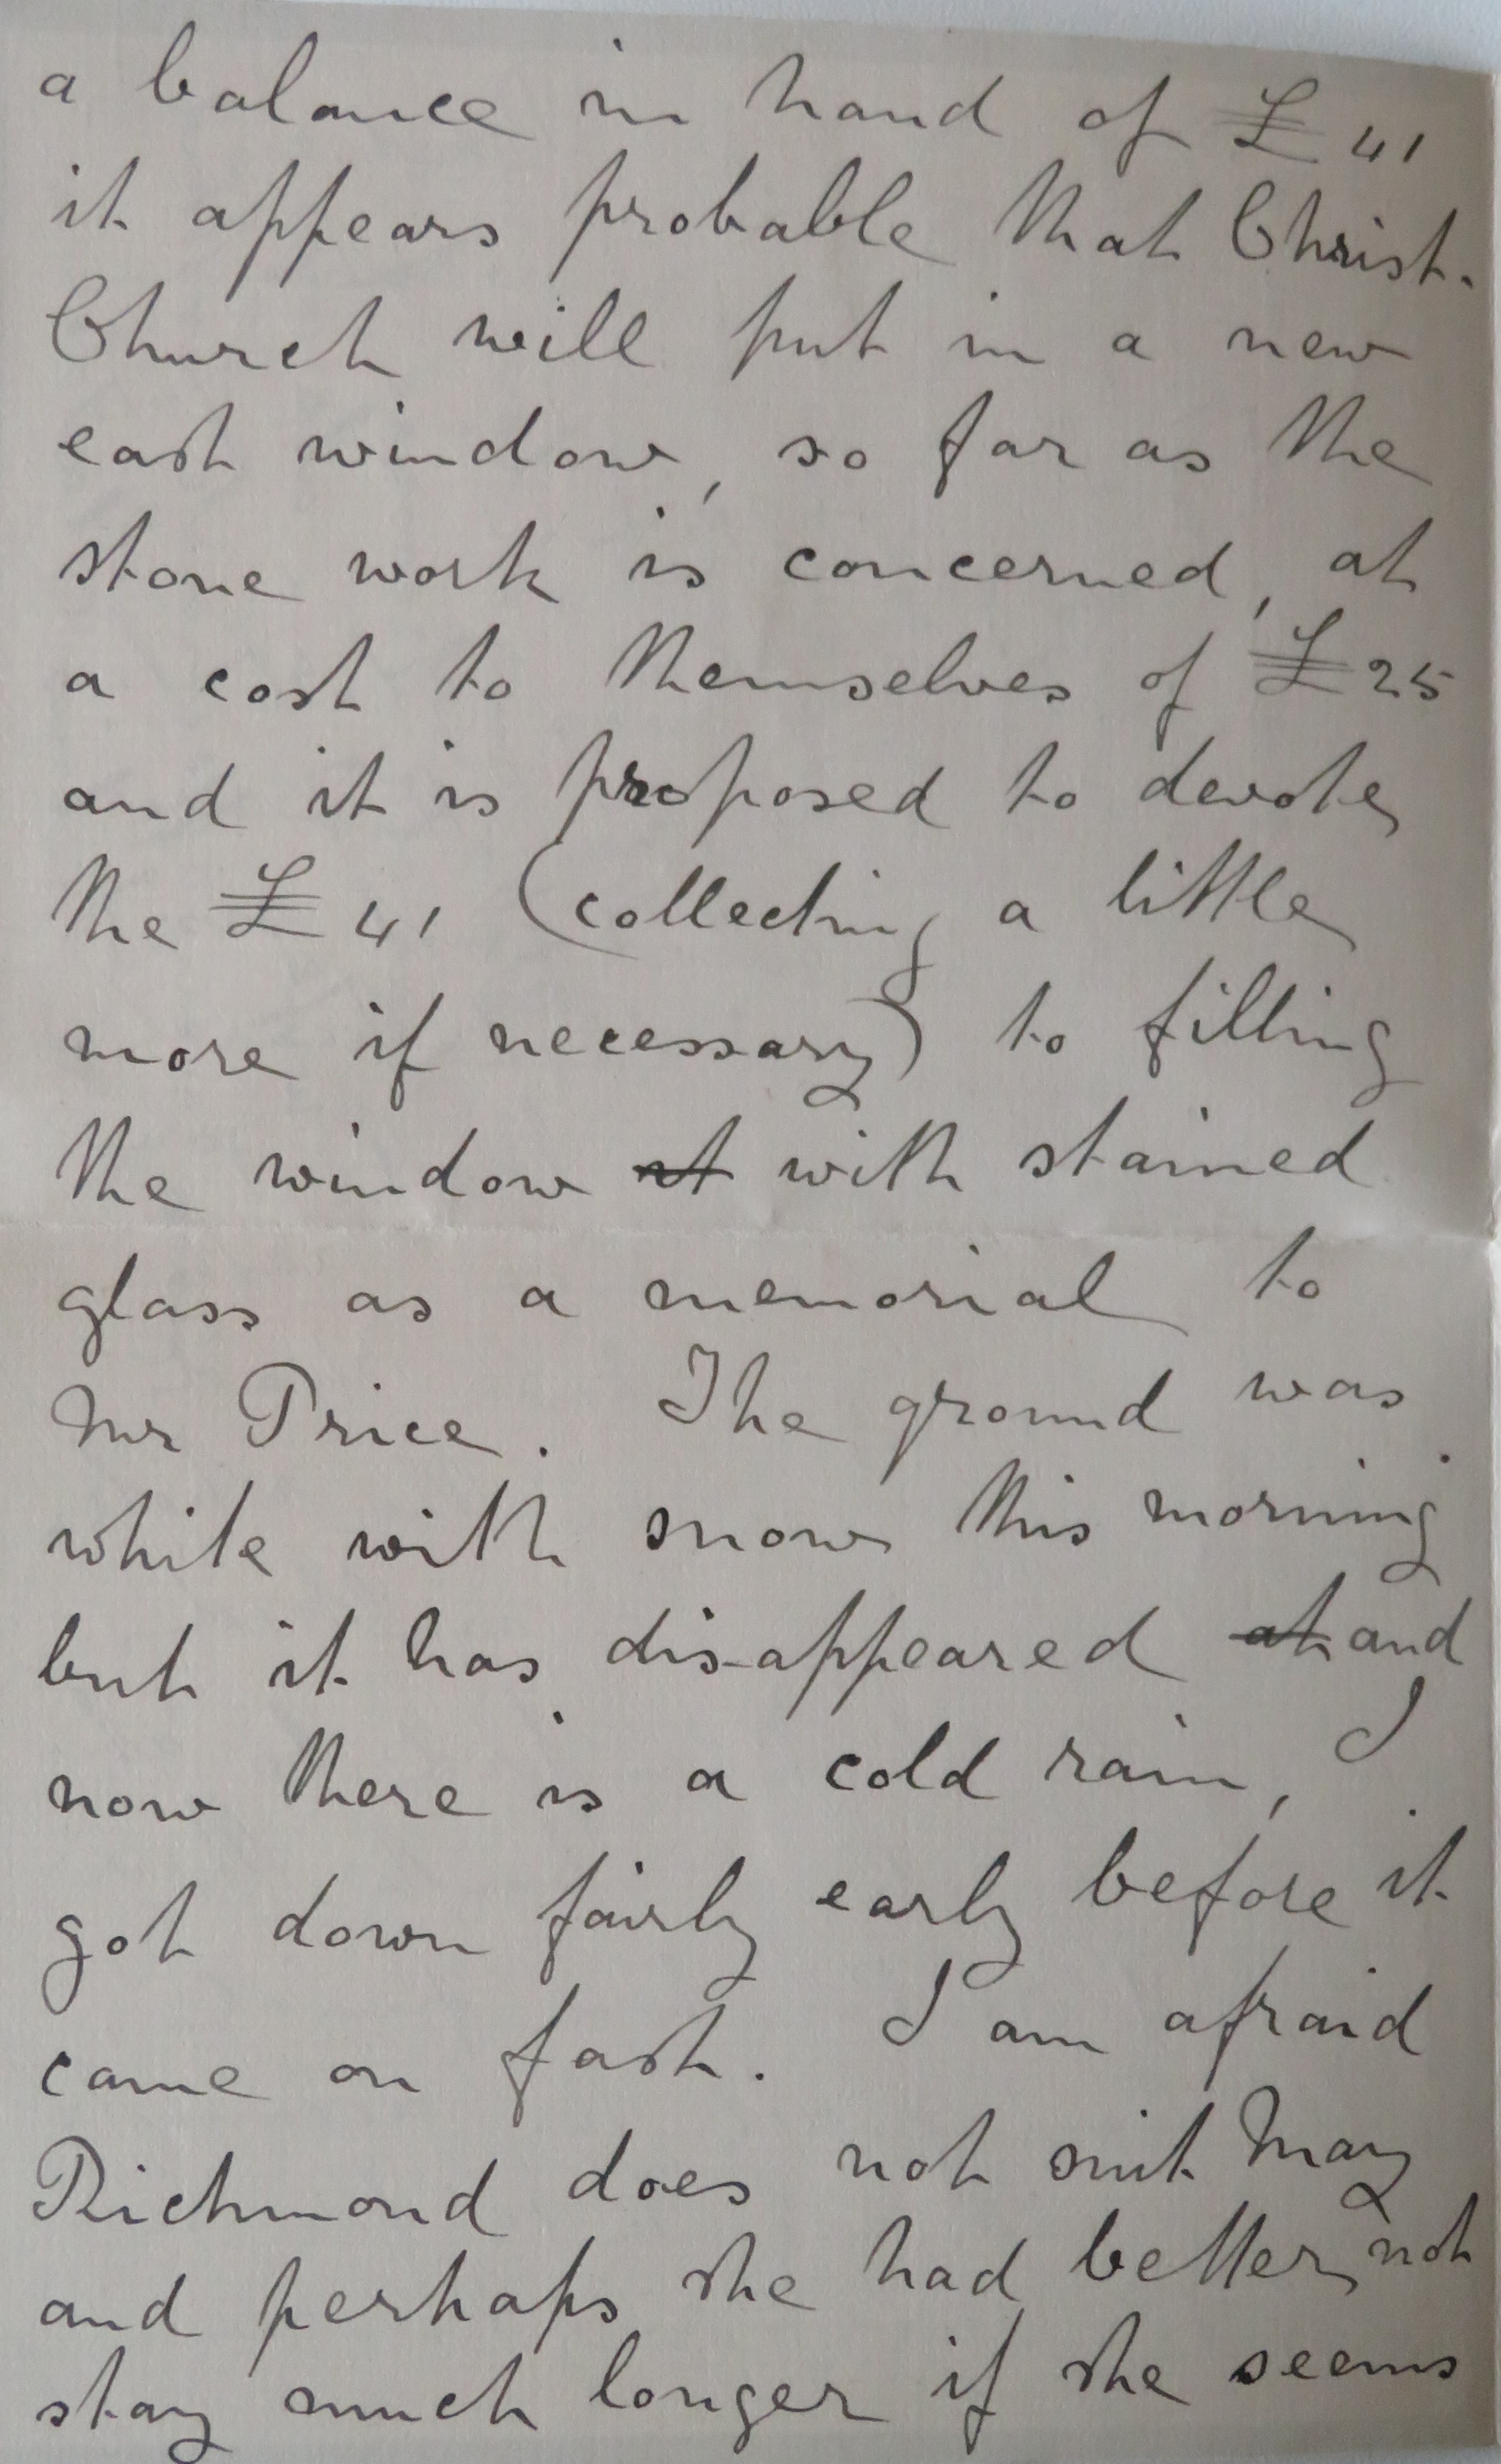 a balance in hand of £41
it appears probable that Christ.
Church will put in a new
east window, so far as the
stone work is concerned, at
a cost to themselves of £25
and it is proposed to devote
the £41 (collecting a little
more if necessary) to filling
the window it with stained
glass as a memorial to
Mr Price. The ground was
white with snow this morning
but it has disappeared at and
now there is a cold rain, I
got down fairly early before it
came on fast. I am afraid
Richmond does not suit May
and perhaps she had better not
stay much longer if she seems